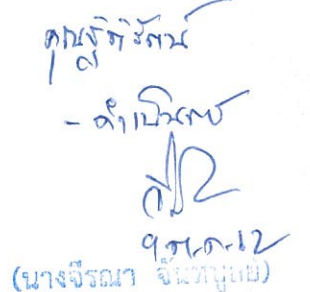 คุณฐิติรัตน์
- ดำเนินการ
9 ต.ค. 62
(นางจีรณา จันทบูลย์)